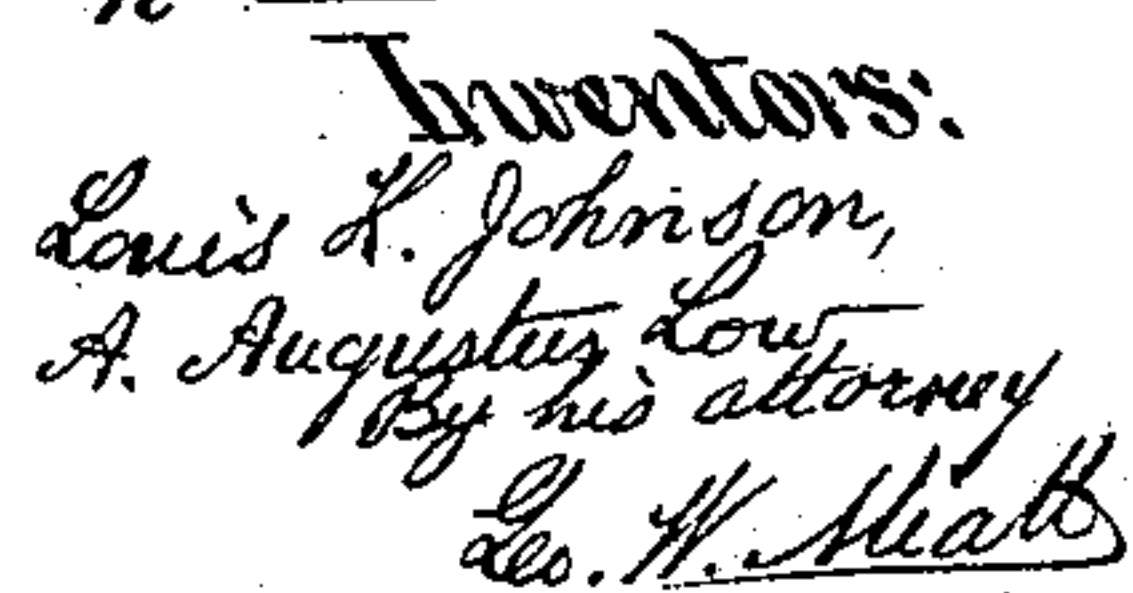 Inventors:
Louis K. Johnson,
A. Augustus Low
By his attorney
Geo. W. Miatt